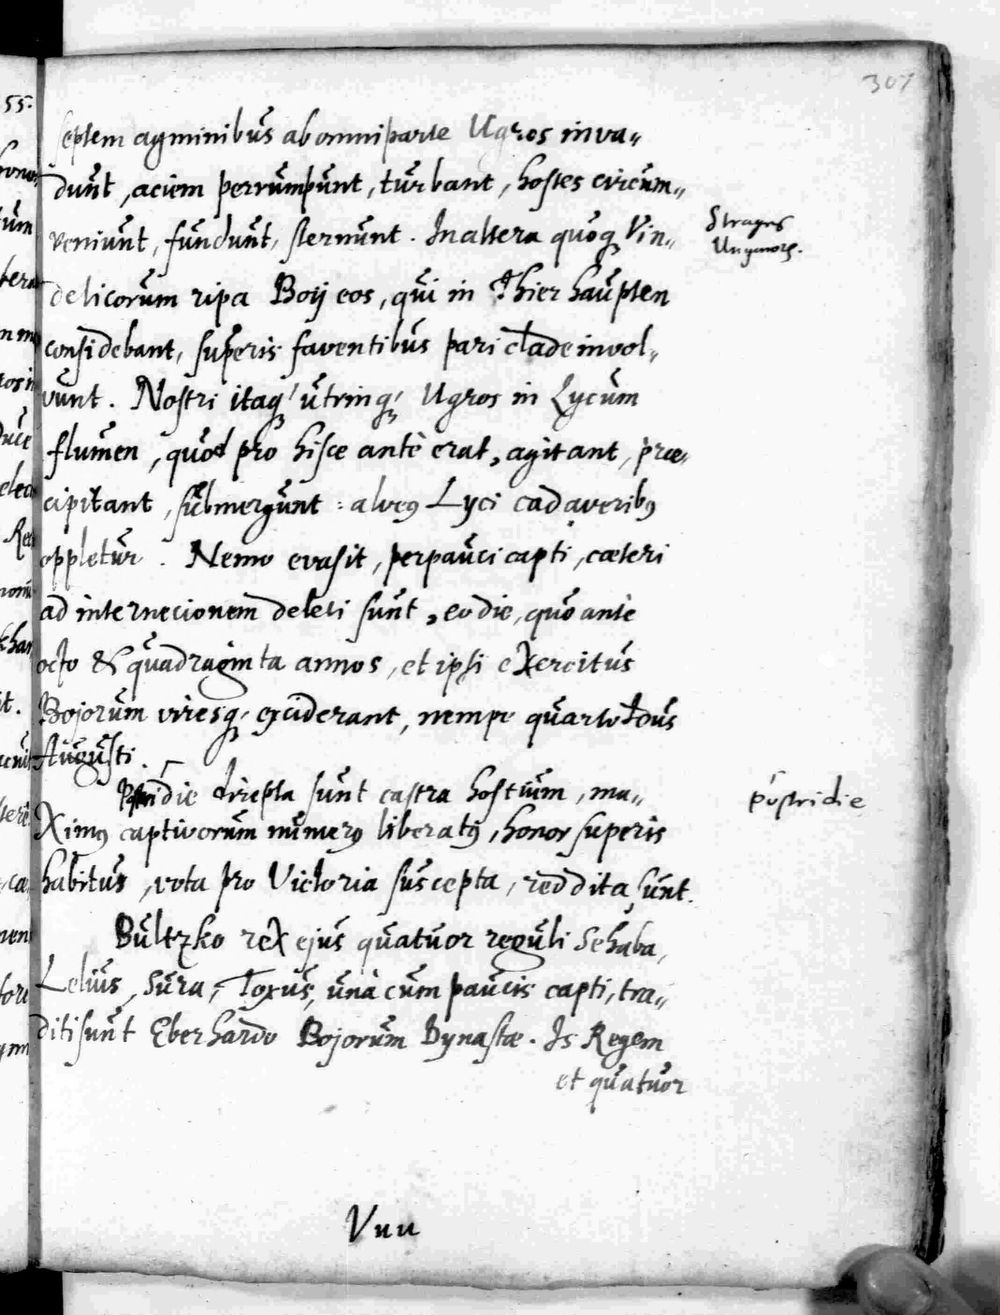 307
septem agminibus ab omni parte Ugros inva„
dunt, aciem perrumpunt, turbant, hostes circum„
veniunt, fundunt, sternunt. In altera quoq Vin„
Strages
Ungarorum.
delicorum ripa Boij eos, qui in Thierhaupten
considebant, superis faventibus pari clade invol„
vunt. Nostri itaq utrinq, Ugros in Lycum
flumen, quod pro hisce antè erat, agitant, præ„
cipitant, submergunt: alveus Lyci cadaveribus
oppletur. Nemo evasit, perpauci capti, cæteri
ad internecionem deleti sunt, eo die, quo ante
octo & quadraginta annos, et ipsi exercitus
Bojorum viresq, exciderant, nempe quarto Idus
Augusti.
die direpta sunt castra hostium, ma„
postridie
ximus captivorum numerus liberatus, honor superis
habitus, vota pro Victoria suscepta, reddita sunt.
Bultzko rex ejus quatuor reguli Schaba,
Lelius, Sura, Toxus, unà cum paucis capti, tra„
diti sunt Eberhardo Bojorum Dynastæ. Is Regem
et quatuor
Vuu